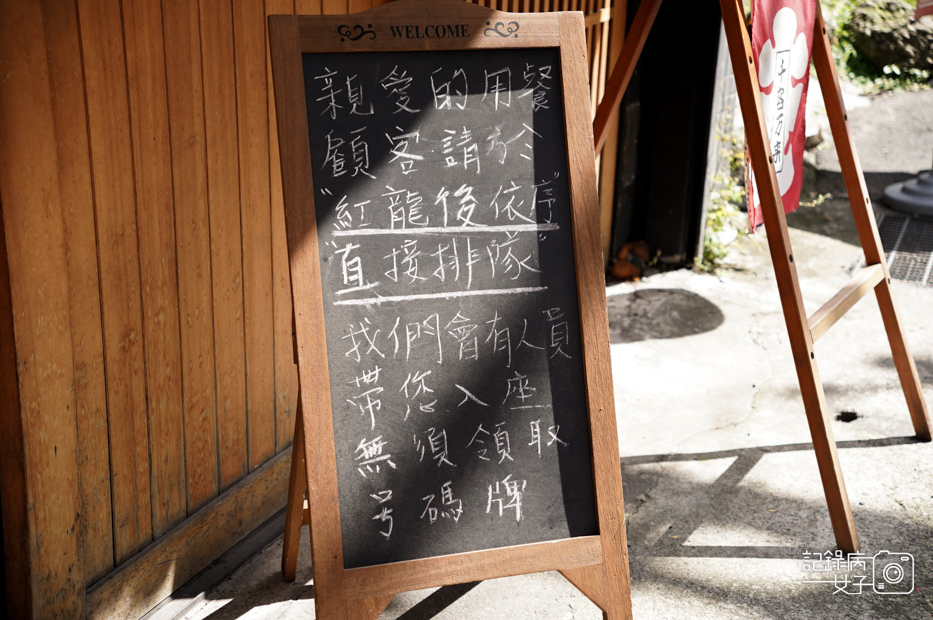 WELCOME
親愛的用餐
顧客請於
"紅龍後依序"
"直接排隊"
我們會有人員
帶您入座
無須領取
号碼牌
千客万来
記錄病女子